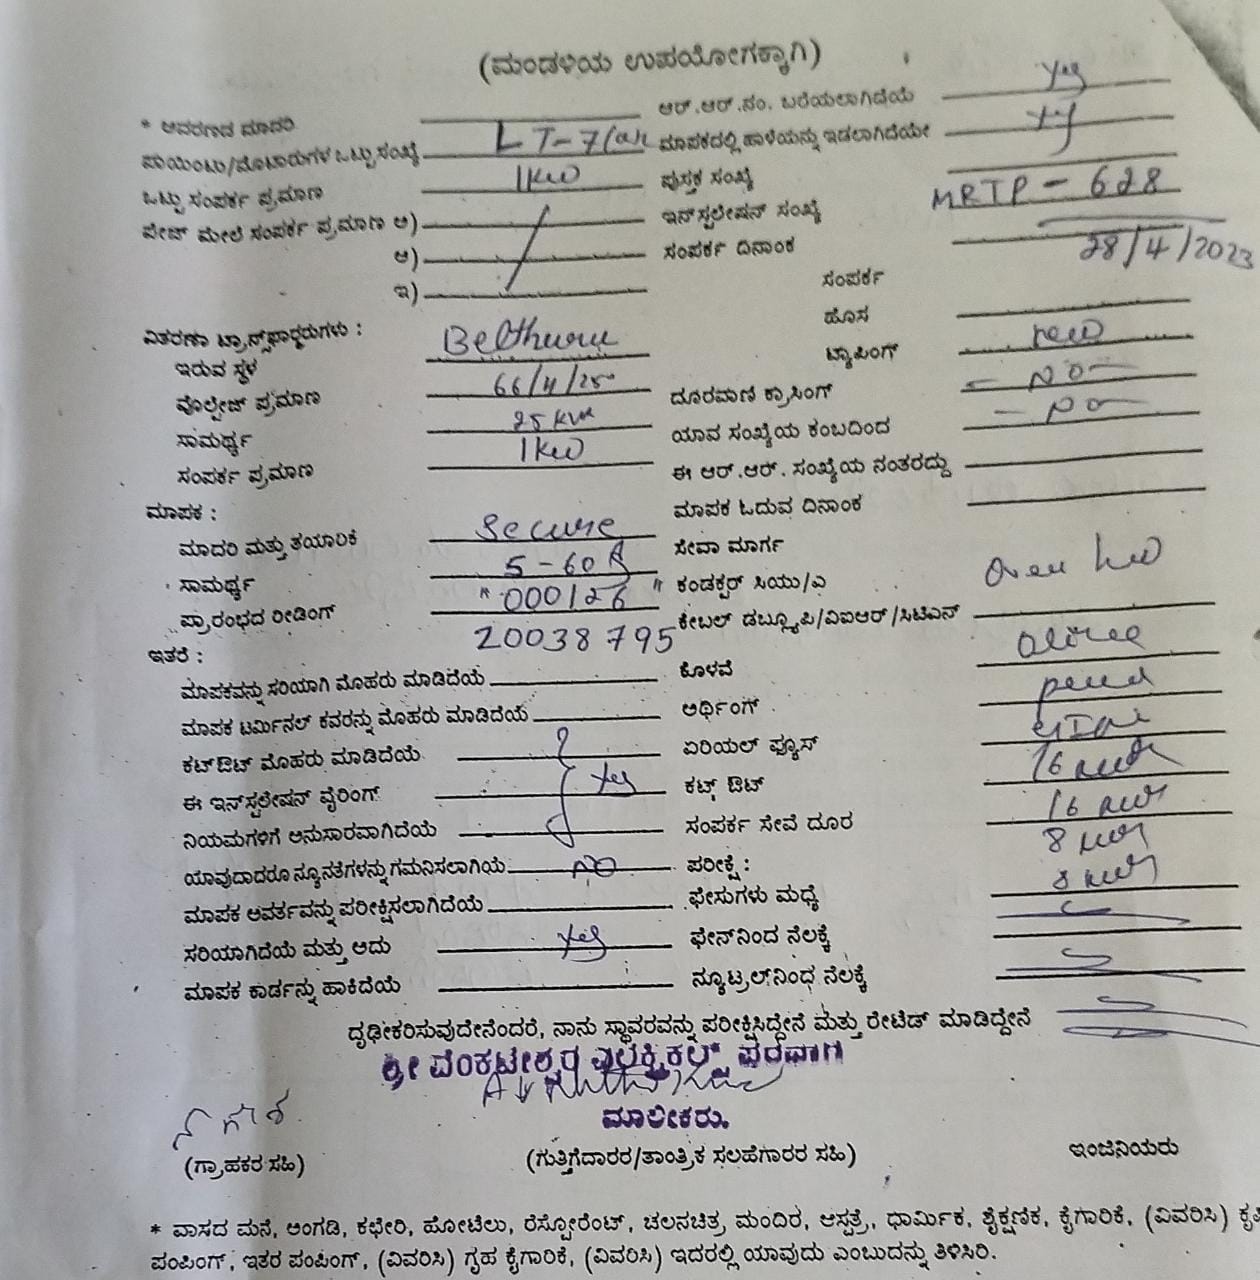 (ಮಂಡಳಿಯ ಉಪಯೋಗಕ್ಕಾಗಿ)
* ಆವರಣದ ಮಾದರಿ
ಪಾಯಿಂಟು/ಮೋಟಾರುಗಳ ಒಟ್ಟು ಸಂಖ್ಯೆ LT-7/
ಒಟ್ಟು ಸಂಪರ್ಕ ಪ್ರಮಾಣ 1KW
ಪೇಜ್ ಮೇಲೆ ಸಂಪರ್ಕ ಪ್ರಮಾಣ ಅ)
ಆ)
ಇ)
ವಿತರಣಾ ಟ್ರಾನ್ಸ್‌ಫಾರ್ಮರುಗಳು :
ಇರುವ ಸ್ಥಳ
ವೊಲ್ಟೇಜ್ ಪ್ರಮಾಣ
ಸಾಮರ್ಥ್ಯ 25 KVA
ಸಂಪರ್ಕ ಪ್ರಮಾಣ 1KW
ಮಾಪಕ :
ಮಾದರಿ ಮತ್ತು ತಯಾರಿಕೆ Secure
ಸಾಮರ್ಥ್ಯ 5-60A
ಪ್ರಾರಂಭದ ರೀಡಿಂಗ್ "000126"
20038795
ಇತರೆ :
ಮಾಪಕವನ್ನು ಸರಿಯಾಗಿ ಮೊಹರು ಮಾಡಿದೆಯೆ
ಮಾಪಕ ಟರ್ಮಿನಲ್ ಕವರನ್ನು ಮೊಹರು ಮಾಡಿದೆಯೆ
ಕಟ್‌ಔಟ್ ಮೊಹರು ಮಾಡಿದೆಯೆ
ಈ ಇನ್‌ಸ್ಟಲೇಷನ್ ವೈರಿಂಗ್ Yes
ನಿಯಮಗಳಿಗೆ ಅನುಸಾರವಾಗಿದೆಯೆ
ಯಾವುದಾದರೂ ನ್ಯೂನತೆಗಳನ್ನು ಗಮನಿಸಲಾಗಿಯೆ NO
ಮಾಪಕ ಆವರ್ತವನ್ನು ಪರೀಕ್ಷಿಸಲಾಗಿದೆಯೆ
ಸರಿಯಾಗಿದೆಯೆ ಮತ್ತು ಅದು Yes
ಮಾಪಕ ಕಾರ್ಡನ್ನು ಹಾಕಿದೆಯೆ
ಆರ್.ಆರ್.ನಂ. ಬರೆಯಲಾಗಿದೆಯೆ Yes
ಮಾಪಕದಲ್ಲಿ ಹಾಳೆಯನ್ನು ಇಡಲಾಗಿದೆಯೇ
ಪುಸ್ತಕ ಸಂಖ್ಯೆ
ಇನ್‌ಸ್ಟಲೇಷನ್ ಸಂಖ್ಯೆ MRTP - 628
ಸಂಪರ್ಕ ದಿನಾಂಕ 28/4/2023
ಸಂಪರ್ಕ
ಹೊಸ
ಟ್ಯಾಪಿಂಗ್ new
ದೂರವಾಣಿ ಕ್ರಾಸಿಂಗ್ - NO -
ಯಾವ ಸಂಖ್ಯೆಯ ಕಂಬದಿಂದ - NO -
ಈ ಆರ್.ಆರ್. ಸಂಖ್ಯೆಯ ನಂತರದ್ದು
ಮಾಪಕ ಓದುವ ದಿನಾಂಕ
ಸೇವಾ ಮಾರ್ಗ
ಕಂಡಕ್ಟರ್ ಸಿಯು/ಎ
ಕೇಬಲ್ ಡಬ್ಲ್ಯೂಪಿ/ವಿಐಆರ್/ಸಿಟಿಎಸ್
ಕೊಳವೆ
ಅರ್ಥಿಂಗ್
ಏರಿಯಲ್ ಫ್ಯೂಸ್
ಕಟ್ಔಟ್
ಸಂಪರ್ಕ ಸೇವೆ ದೂರ
ಪರೀಕ್ಷೆ :
ಫೇಸುಗಳು ಮಧ್ಯೆ
ಫೇಸ್‌ನಿಂದ ನೆಲಕ್ಕೆ
ನ್ಯೂಟ್ರಲ್‌ನಿಂಧ ನೆಲಕ್ಕೆ
ದೃಢೀಕರಿಸುವುದೇನೆಂದರೆ, ನಾನು ಸ್ಥಾವರವನ್ನು ಪರೀಕ್ಷಿಸಿದ್ದೇನೆ ಮತ್ತು ರೇಟೆಡ್ ಮಾಡಿದ್ದೇನೆ
ಶ್ರೀ ವೆಂಕಟೇಶ್ವರ ಎಲೆಕ್ಟ್ರಿಕಲ್ಸ್ ಪರವಾಗಿ
ಮಾಲೀಕರು.
(ಗ್ರಾಹಕರ ಸಹಿ) (ಗುತ್ತಿಗೆದಾರರ/ತಾಂತ್ರಿಕ ಸಲಹೆಗಾರರ ಸಹಿ) ಇಂಜಿನಿಯರು
* ವಾಸದ ಮನೆ, ಅಂಗಡಿ, ಕಛೇರಿ, ಹೋಟೆಲು, ರೆಸ್ಟೋರೆಂಟ್, ಚಲನಚಿತ್ರ ಮಂದಿರ, ಆಸ್ಪತ್ರೆ, ಧಾರ್ಮಿಕ, ಶೈಕ್ಷಣಿಕ, ಕೈಗಾರಿಕೆ, (ವಿವರಿಸಿ)
ಪಂಪಿಂಗ್, ಇತರ ಪಂಪಿಂಗ್, (ವಿವರಿಸಿ) ಗೃಹ ಕೈಗಾರಿಕೆ, (ವಿವರಿಸಿ) ಇದರಲ್ಲಿ ಯಾವುದು ಎಂಬುದನ್ನು ತಿಳಿಸಿರಿ.